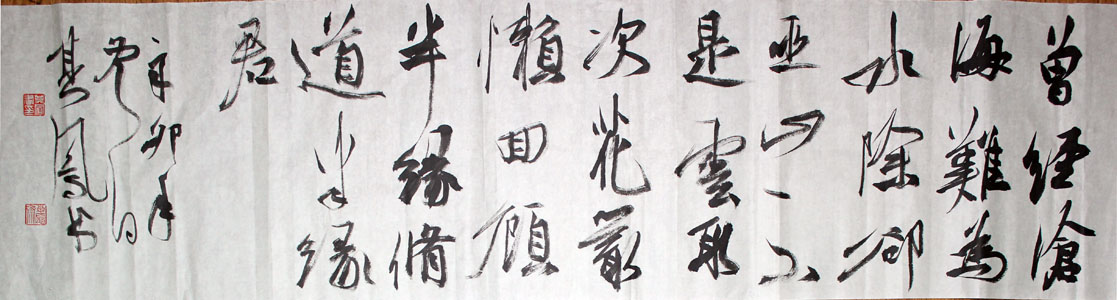 曾經滄
海難為
水除卻
巫山不
是雲取
次花叢
懶回顧
半緣脩
道半緣
君
辛卯年
鳳书